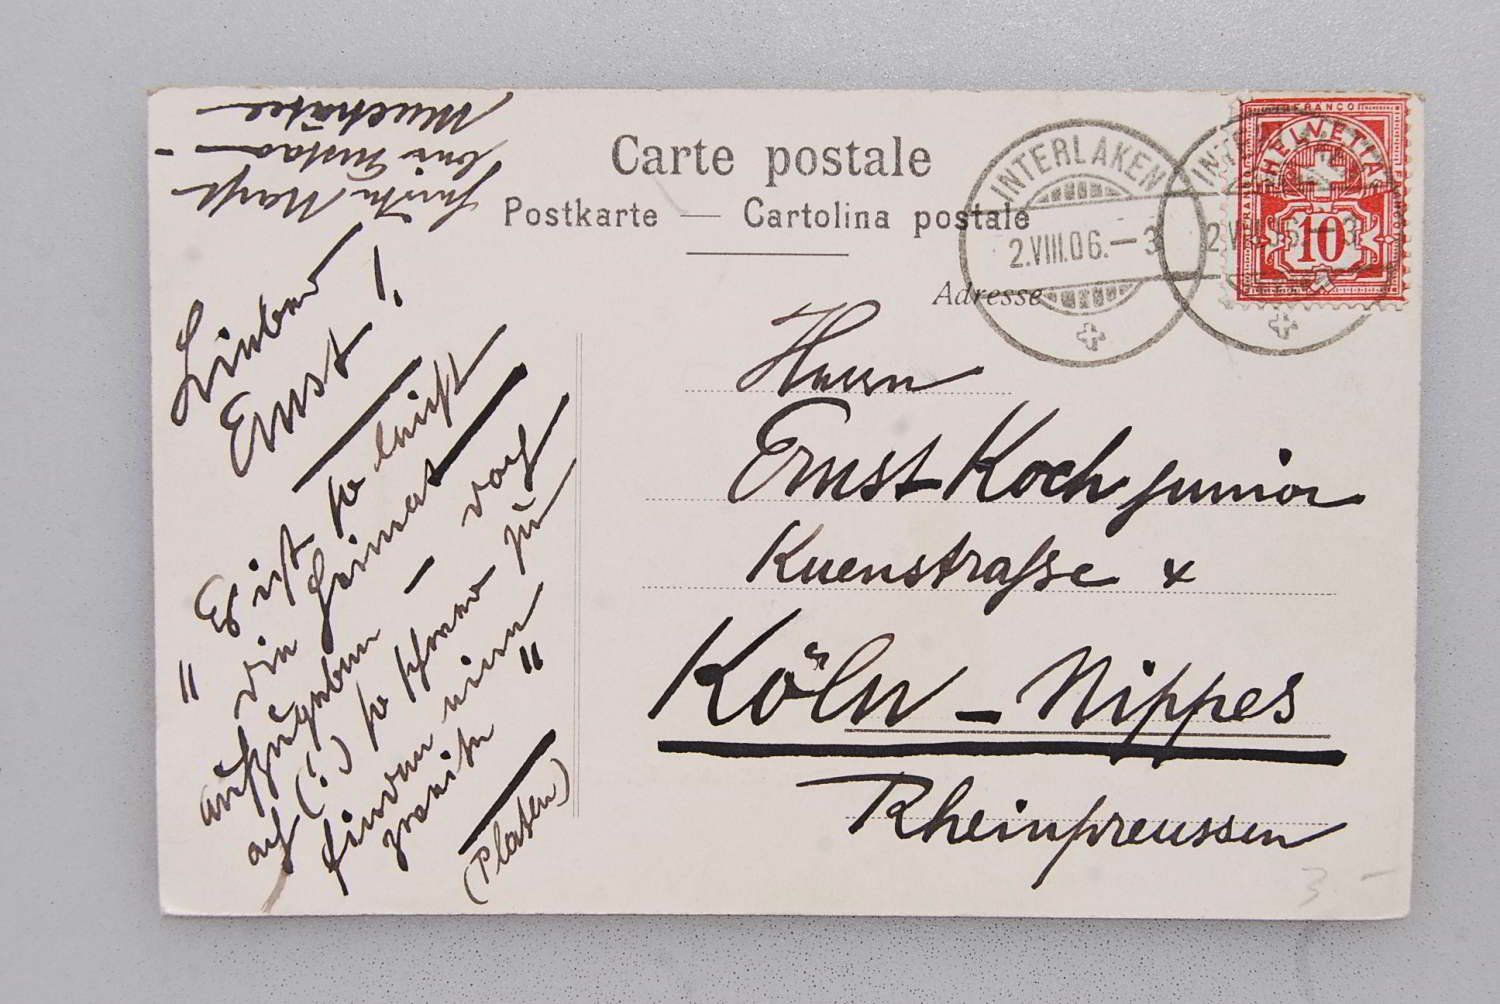 Carte postale
Postkarte — Cartolina postale
Adresse
INTERLAKEN
2.VIII.06.—3
INT
2.VIII.06.—3
FRANCO
HELVETIA
10
Herrn
Ernst Koch junior
Kuenstraße 4
Köln - Nippes
Rheinpreussen
Lieber
Ernst!
"Es ist so leicht
die Heimat
aufzugeben - doch
ach (!) so schwer zu
finden eine
zweite"
(Platen)
3 -